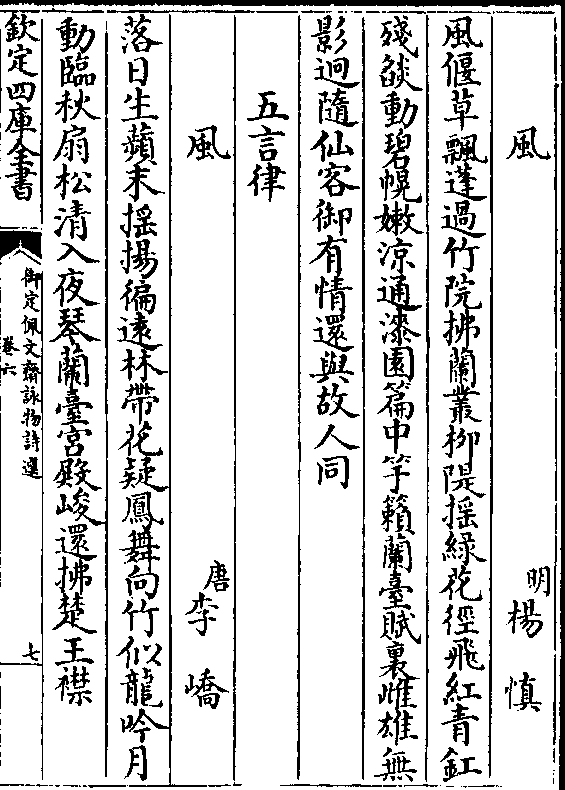 風　明楊慎
風偃草飄蓬過竹院拂蘭叢柳隄摇緑花徑飛紅青釭
殘燄動碧幌嫩涼通漆園篇中竽籟蘭臺賦裏雌雄無
影迥隨仙客御有情還與故人同
五言律
風　唐李嶠
落日生蘋末摇揚徧遠林帶花疑鳳舞向竹似龍吟月
動臨秋扇松清入夜琴蘭臺宮殿峻還拂楚王襟
欽定四庫全書
御定佩文齋詠物詩選
卷六
七